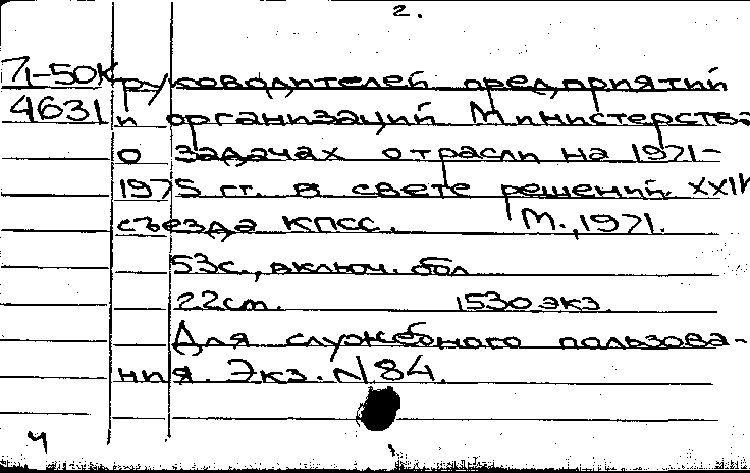 2.
71-50К руководителей предприятий
4631 и организаций Министерства
о задачах отрасли на 1971-
1975 гг. в свете решений XXIV
съезда КПСС. М., 1971.
53с., включ. обл
22см. 1530 экз.
Для служебного пользова-
ния. Экз. N 84.